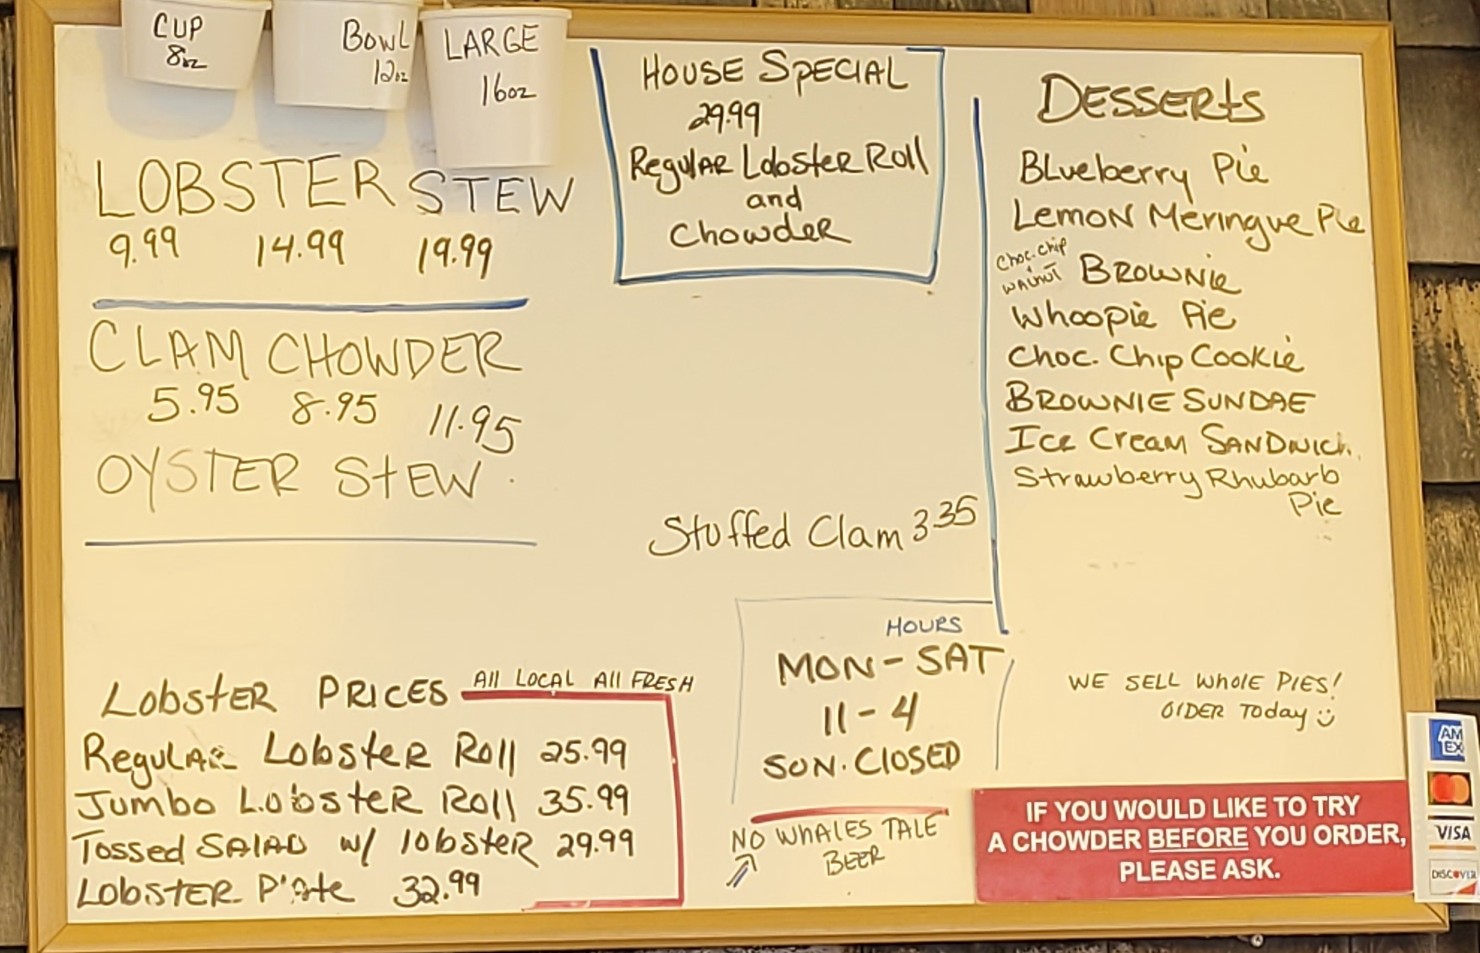 CUP
8oz
BOWL
12oz
LARGE
16oz
LOBSTER STEW
9.99 14.99 19.99
CLAM CHOWDER
5.95 8.95 11.95
OYSTER STEW
HOUSE SPECIAL
29.99
Regular Lobster Roll
and
Chowder
Stuffed Clam 3.35
DESSERTS
Blueberry Pie
Lemon Meringue Pie
Choc. Chip
Walnut BROWNIE
Whoopie Pie
Choc. Chip Cookie
BROWNIE SUNDAE
Ice Cream SANDWICH
Strawberry Rhubarb
Pie
Lobster PRICES All LOCAL All FRESH
Regular Lobster Roll 25.99
Jumbo Lobster Roll 35.99
Tossed SALAD w/ lobster 29.99
Lobster Plate 32.99
HOURS
MON-SAT
11-4
SUN. CLOSED
NO WHALES TALE
BEER
WE SELL WHOLE PIES!
ORDER Today
IF YOU WOULD LIKE TO TRY
A CHOWDER BEFORE YOU ORDER,
PLEASE ASK.
AM
EX
VISA
DISCOVER